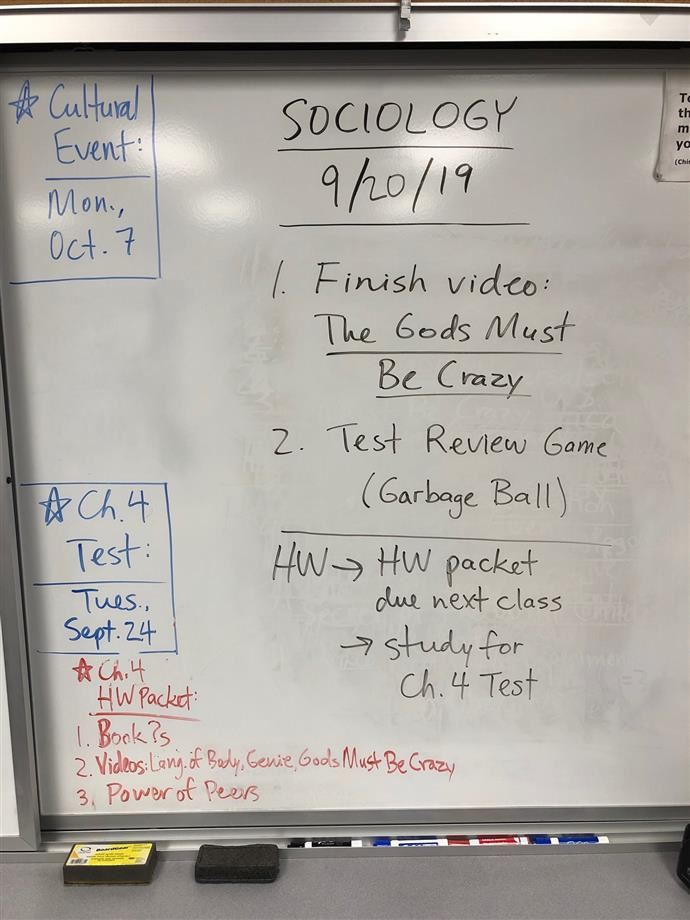 ☆ Cultural
Event:
Mon.,
Oct. 7
SOCIOLOGY
9/20/19
1. Finish video:
The Gods Must
Be Crazy
2. Test Review Game
(Garbage Ball)
HW → HW packet
due next class
→ study for
Ch. 4 Test
☆ Ch. 4
Test:
Tues.,
Sept. 24
☆ Ch. 4
HW Packet:
1. Book ?s
2. Videos: Lang. of Body, Genie, Gods Must Be Crazy
3. Power of Peers
To
th
m
yo
(Chi